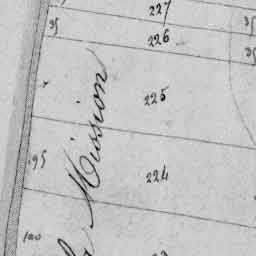 227
35
35
226
35
225
Mission
95
224
100